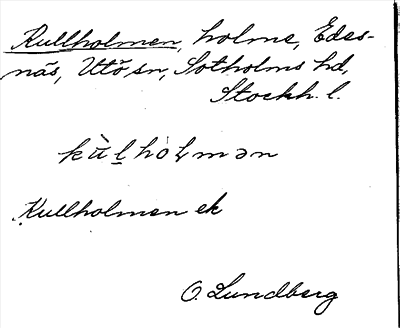 Kullholmen, holme, Edes-
näs, Utö sn, Sotholms hd,
Stockh. l.
kùl̲hòlmən
Kullholmen ek
O. Lundberg